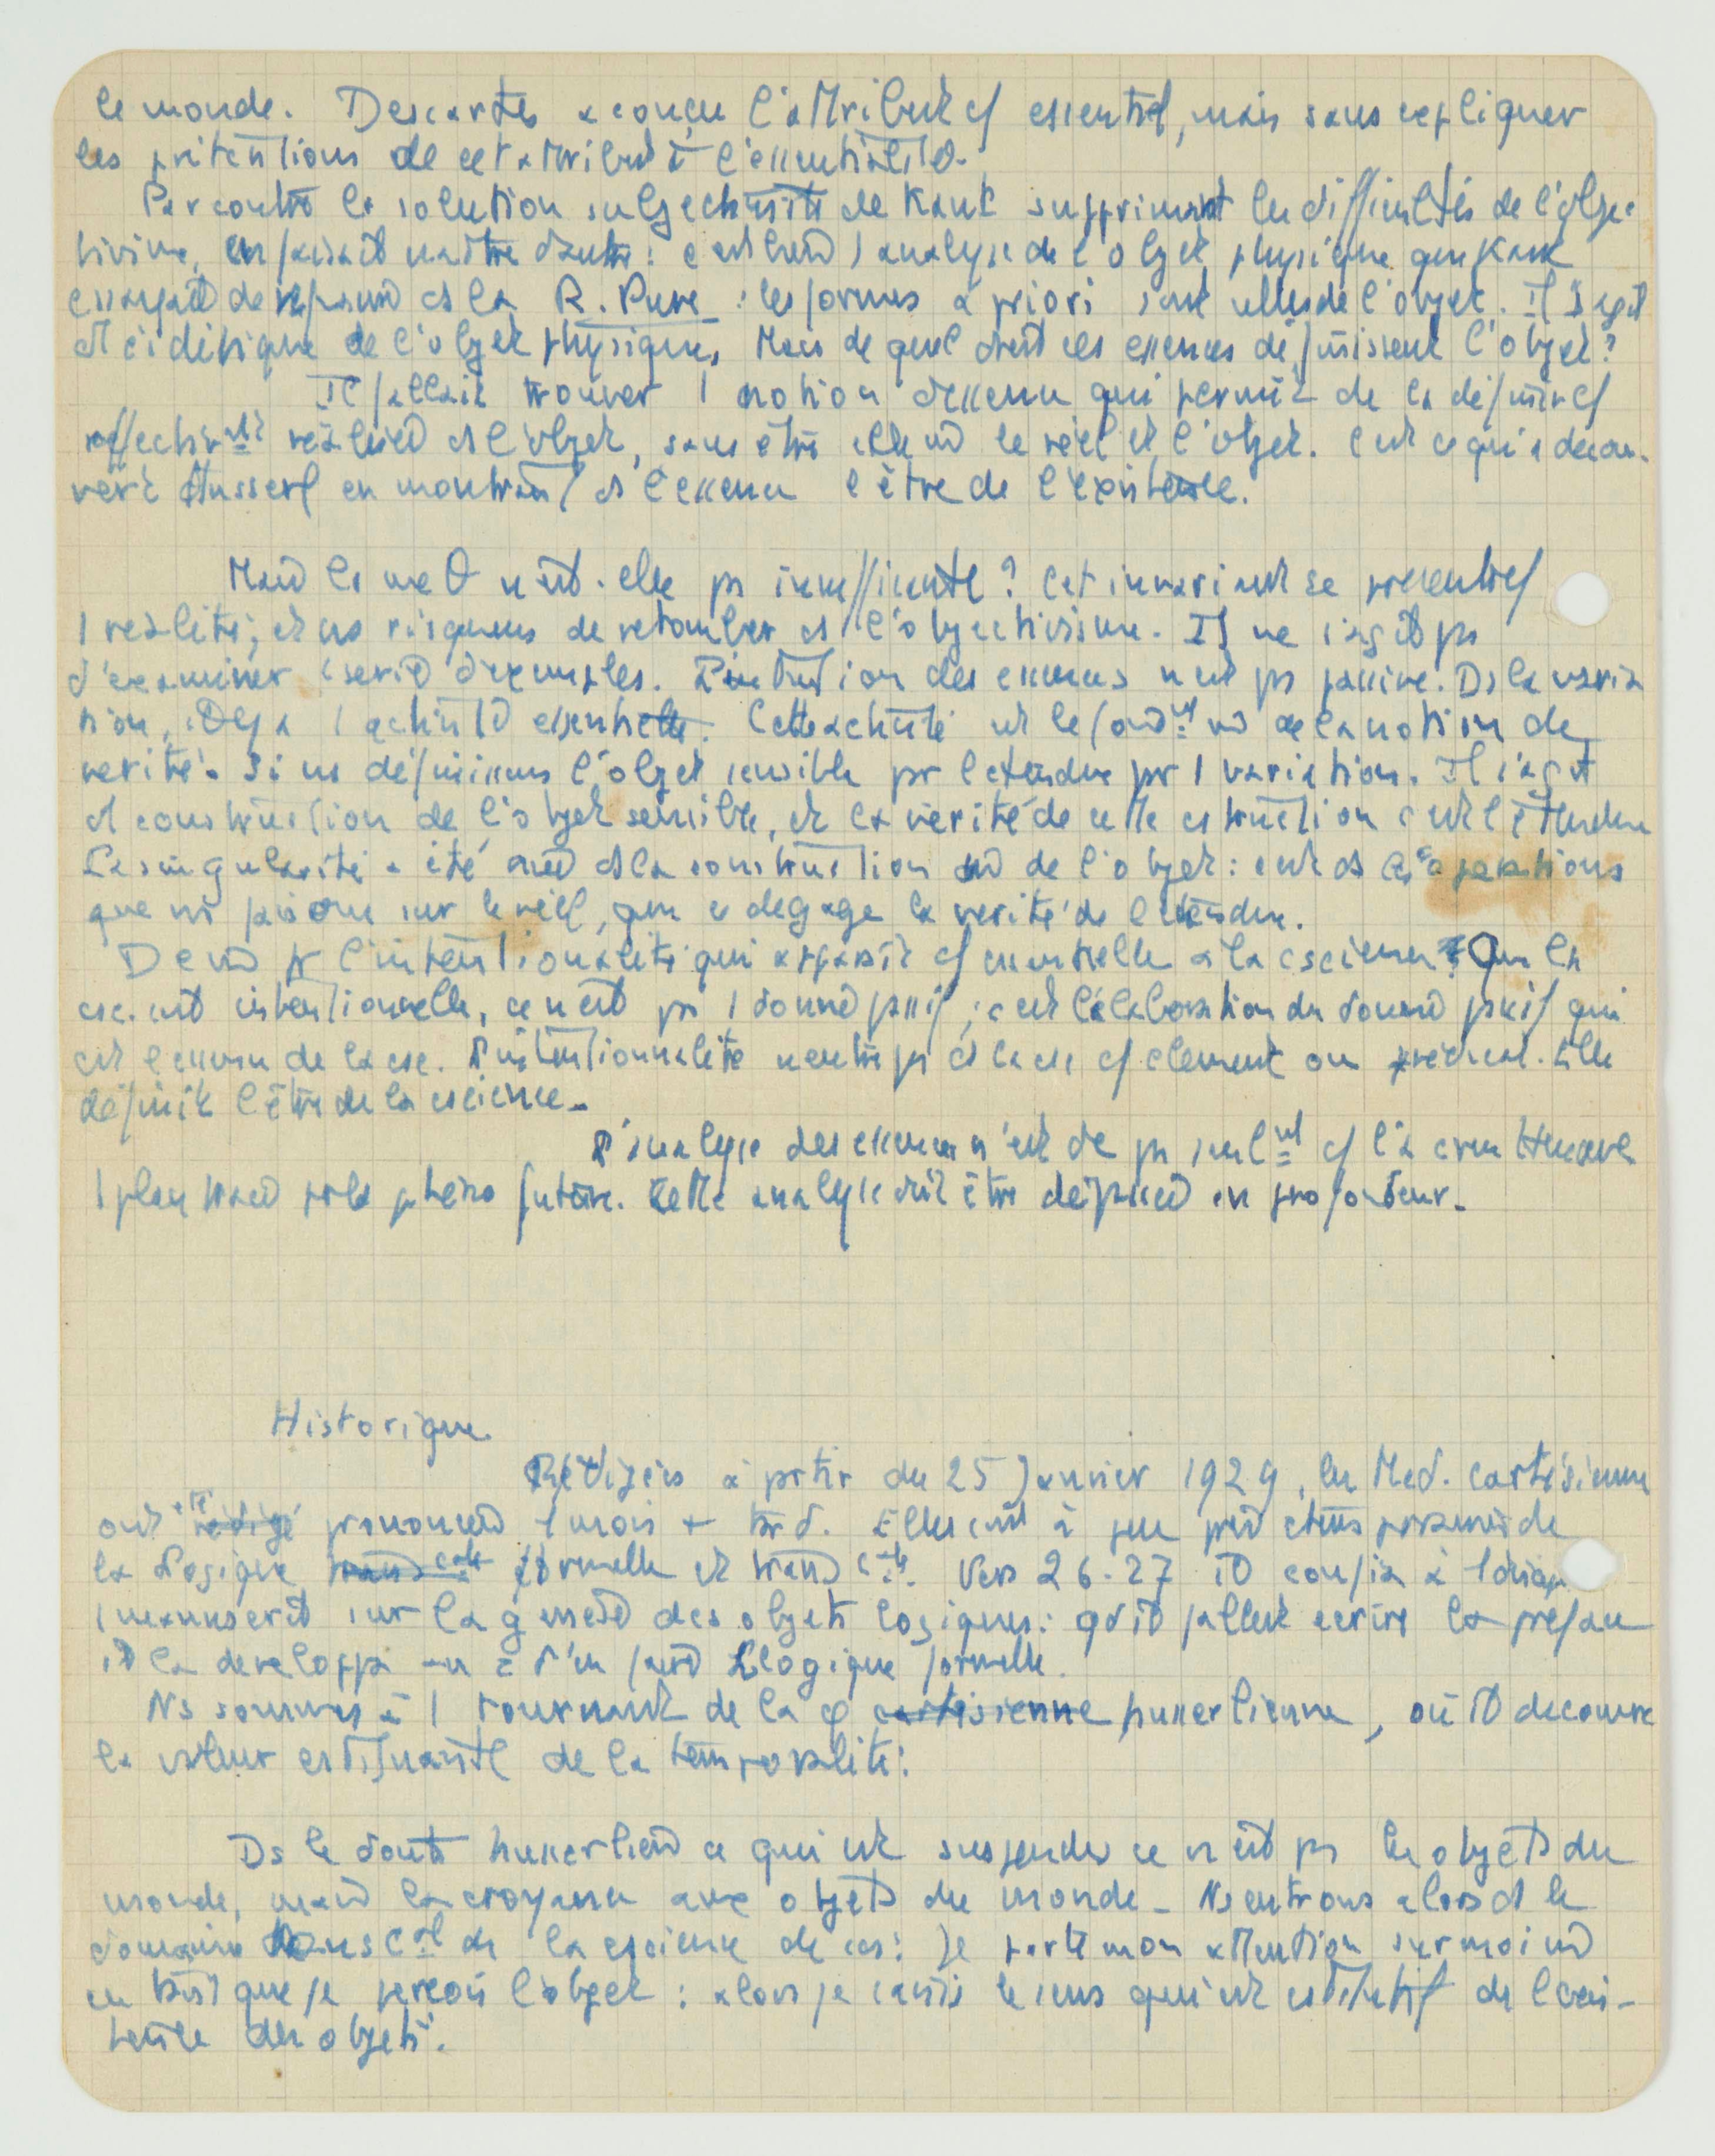 le monde. Descartes a conçu l'attribut cf essentiel, mais sans expliquer
les prétentions de cet attribut à l'essentialité.
Par contre la solution subjectiviste de Kant supprimant les difficultés de l'objec-
tivisme, en faisait naître d'autres : c'est bien 1 analyse de l'objet physique que Kant
essayait de ds la R. Pure : les formes a priori sont celles de l'objet. Il s'agit
ds l'eidétique de l'objet physique, Mais de quel droit ces essences définissent l'objet ?
Il fallait trouver 1 notion d'essence qui permit de la définir cf
effectivt réalisée ds l'objet, sans être elle le réel et l'objet. C'est ce qu'a décou-
vert Husserl en montrant ds l'essence l'être de l'existence.
Mais la n'est-elle ps insuffisante ? Cet invariant se présente cf
1 réalité ; et ns risquons de retomber ds l'objectivisme. Il ne s'agit ps
d'examiner 1 série d'exemples. L'intuition des essences n'est ps passive. Ds la varia
tion, il y a 1 activité essentielle. Cette activité est le fondt de la notion de
vérité. Si ns définissons l'objet sensible pr l'étendue pr 1 variation. Il s'agit
ds construction de l'objet sensible, et la vérité de cette cstruction c'est l'étendue
La singularité a été ds la construction de l'objet : c'est ds les opérations
que ns faisons sur le réel, que se dégage la vérité de l'étendue.
De pr l'intentionalité qui apparaît cf essentielle à la cscience. Que la
csc. est intentionnelle, ce n'est ps 1 donné passif ; c'est l'élaboration du donné passif qui
est l'essence de la csc. L'intentionnalité n'entre ps ds la csc cf élément ou prédicat. Elle
définit l'être de la cscience.
L'analyse des essences n'est dc ps seult cf l'a cru Husserl
1 plan tracé pr la phéno future. Cette analyse doit être dépassée en profondeur.
Historique.
Rédigées à partir du 25 Janvier 1929, les Méd. cartésiennes
ont été rédigé prononcées 1 mois + tard. Elles sont à peu près ctemporaines de
la Logique formelle et transcle. Vers 26-27 il confia à
1 manuscrit sur la genèse des objets logiques : qd il fallut écrire la préface
il la développa au d'en faire Logique formelle.
Ns sommes à 1 tournant de la φ cartésienne husserlienne, où il découvre
la valeur cstituante de la temporalité.
Ds le doute husserlien ce qui est suspendu ce n'est ps les objets du
monde, mais la croyance aux objets du monde. Ns entrons alors ds le
domaine transcal de la cscience de csc : je porte mon attention sur moi
en tant que je perçois l'objet : alors je saisis le sens qui est cstitutif de l'exis-
tence des objets.